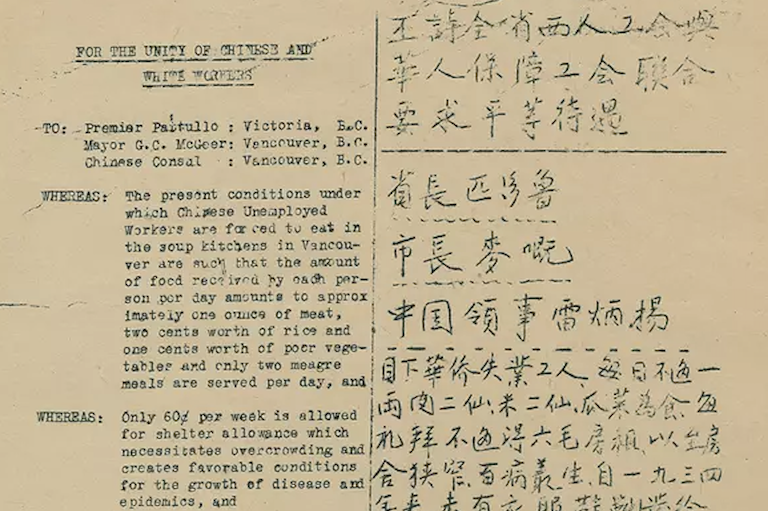 FOR THE UNITY OF CHINESE AND
WHITE WORKERS
TO: Premier Pattullo : Victoria, B.C.
Mayor G.C. McGeer: Vancouver, B.C.
Chinese Consul : Vancouver, B.C.
WHEREAS: The present conditions under
which Chinese Unemployed
Workers are forced to eat in
the soup kitchens in Vancou-
ver are such that the amount
of food received by each per-
son per day amounts to approx
imately one ounce of meat,
two cents worth of rice and
one cents worth of poor vege-
tables and only two meagre
meals are served per day, and
WHEREAS: Only 60¢ per week is allowed
for shelter allowance which
necessitates overcrowding and
creates favorable conditions
for the growth of disease and
epidemics, and
全省西人工会與
華人保障工会联合
要求平等待遇
省長匹多魯
市長麥嘅
中国領事雷炳揚
目下華侨失業工人每日不过一
両肉二仙米二仙瓜菜為食每
礼拜不过得六毛房租以至房
舍狭窄百病叢生自一九三四
年来未有衣服鞋